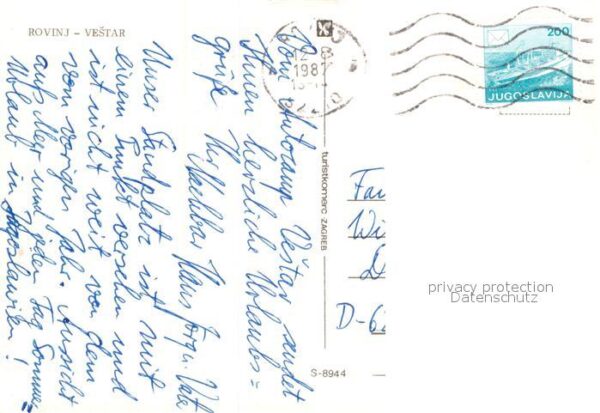 ROVINJ – VEŠTAR
Vom Autocamp Veštar sendet
Ihnen herzliche Urlaubs=
grüße Ihr Nachbar Hans Jörg u. Ute
Unser Standplatz ist mit
einem Punkt versehen und
ist nicht weit von dem
vom vorigen Jahr. Aussicht
aufs Meer und jeden Tag Sonne=
Urlaub in Jugoslawien!
turistkomerc ZAGREB
S-8944
1987
200
JUGOSLAVIJA
Fa
Wi
D
D-62
privacy protection
Datenschutz